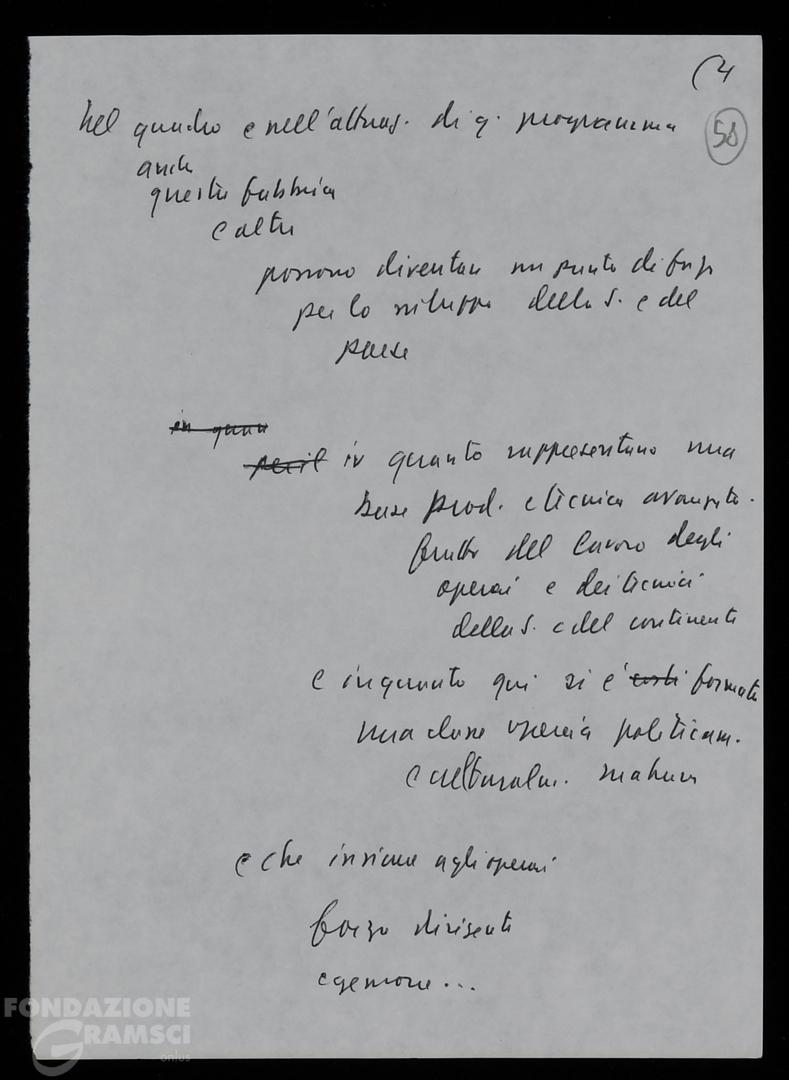 (4
58
Nel quadro e nell'attuaz. di q. programma
anche
questa fabbrica
e altre
possono diventare un punto di forza
per lo sviluppo della S. e del
paese
in quan
per il in quanto rappresentano una
base prod. e tecnica avanzata.
frutto del lavoro degli
operai e dei tecnici
della S. e del continente
e in quanto qui si è così formata
una classe operaia politicam.
e culturalm. matura
e che insieme agli operai
forza dirigente
egemone...
FONDAZIONE
GRAMSCI
onlus